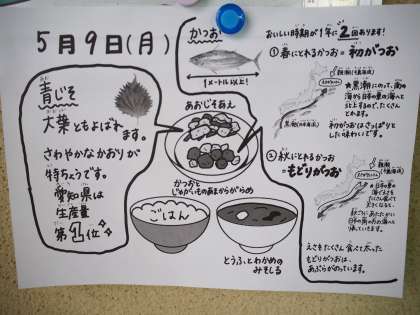 5月9日(月)
青じそ
大葉ともよばれ
ます。
さわやかなかおりが
特ちょうです。
愛知県は
生産量
第1位
かつお
1メートル以上!
あおじそあえ
かつおと
じゃがいもの
あまからがらめ
ごはん
とうふとわかめの
みそしる
おいしい時期が1年に2回あります!
①春にとれるかつお=初がつお
★黒潮にのって、南の
海から日本の東の海へと
北上するので、たくさん
とれます。
初がつおはさっぱりと
した味わいです。
②秋にとれるかつお
=もどりがつお
えさをたくさん食べて太った
もどりがつおは、
あぶらがのっています。